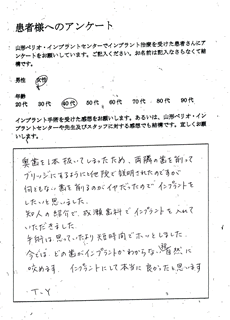 患者様へのアンケート
山形ペリオ・インプラントセンターでインプラント治療を受けた患者さんにア
ンケートをお願いしています。ご記入ください。お名前は記入なさらなくて結
構です。
男性 女性
年齢
20代 30代 40代 50代 60代 70代 80代 90代
インプラント手術を受けた感想をお願いします。あるいは、山形ペリオ・イン
プラントセンターや先生及びスタッフに対する感想でも結構です。宜しくお願
いします。
奥歯を1本抜いてしまったため、両隣の歯を削って
ブリッジにするように他院で説明されたのですが
何ともない歯を削るのがイヤだったのでインプラントを
したいと思いました。
知人の紹介で、成瀬歯科でインプラントを入れて
いただきました。
手術は思っていたより短時間でホッとしました。
今では、どの歯がインプラントかわからない位自然に
咬めます。インプラントにして本当に良かったと思います
T.Y